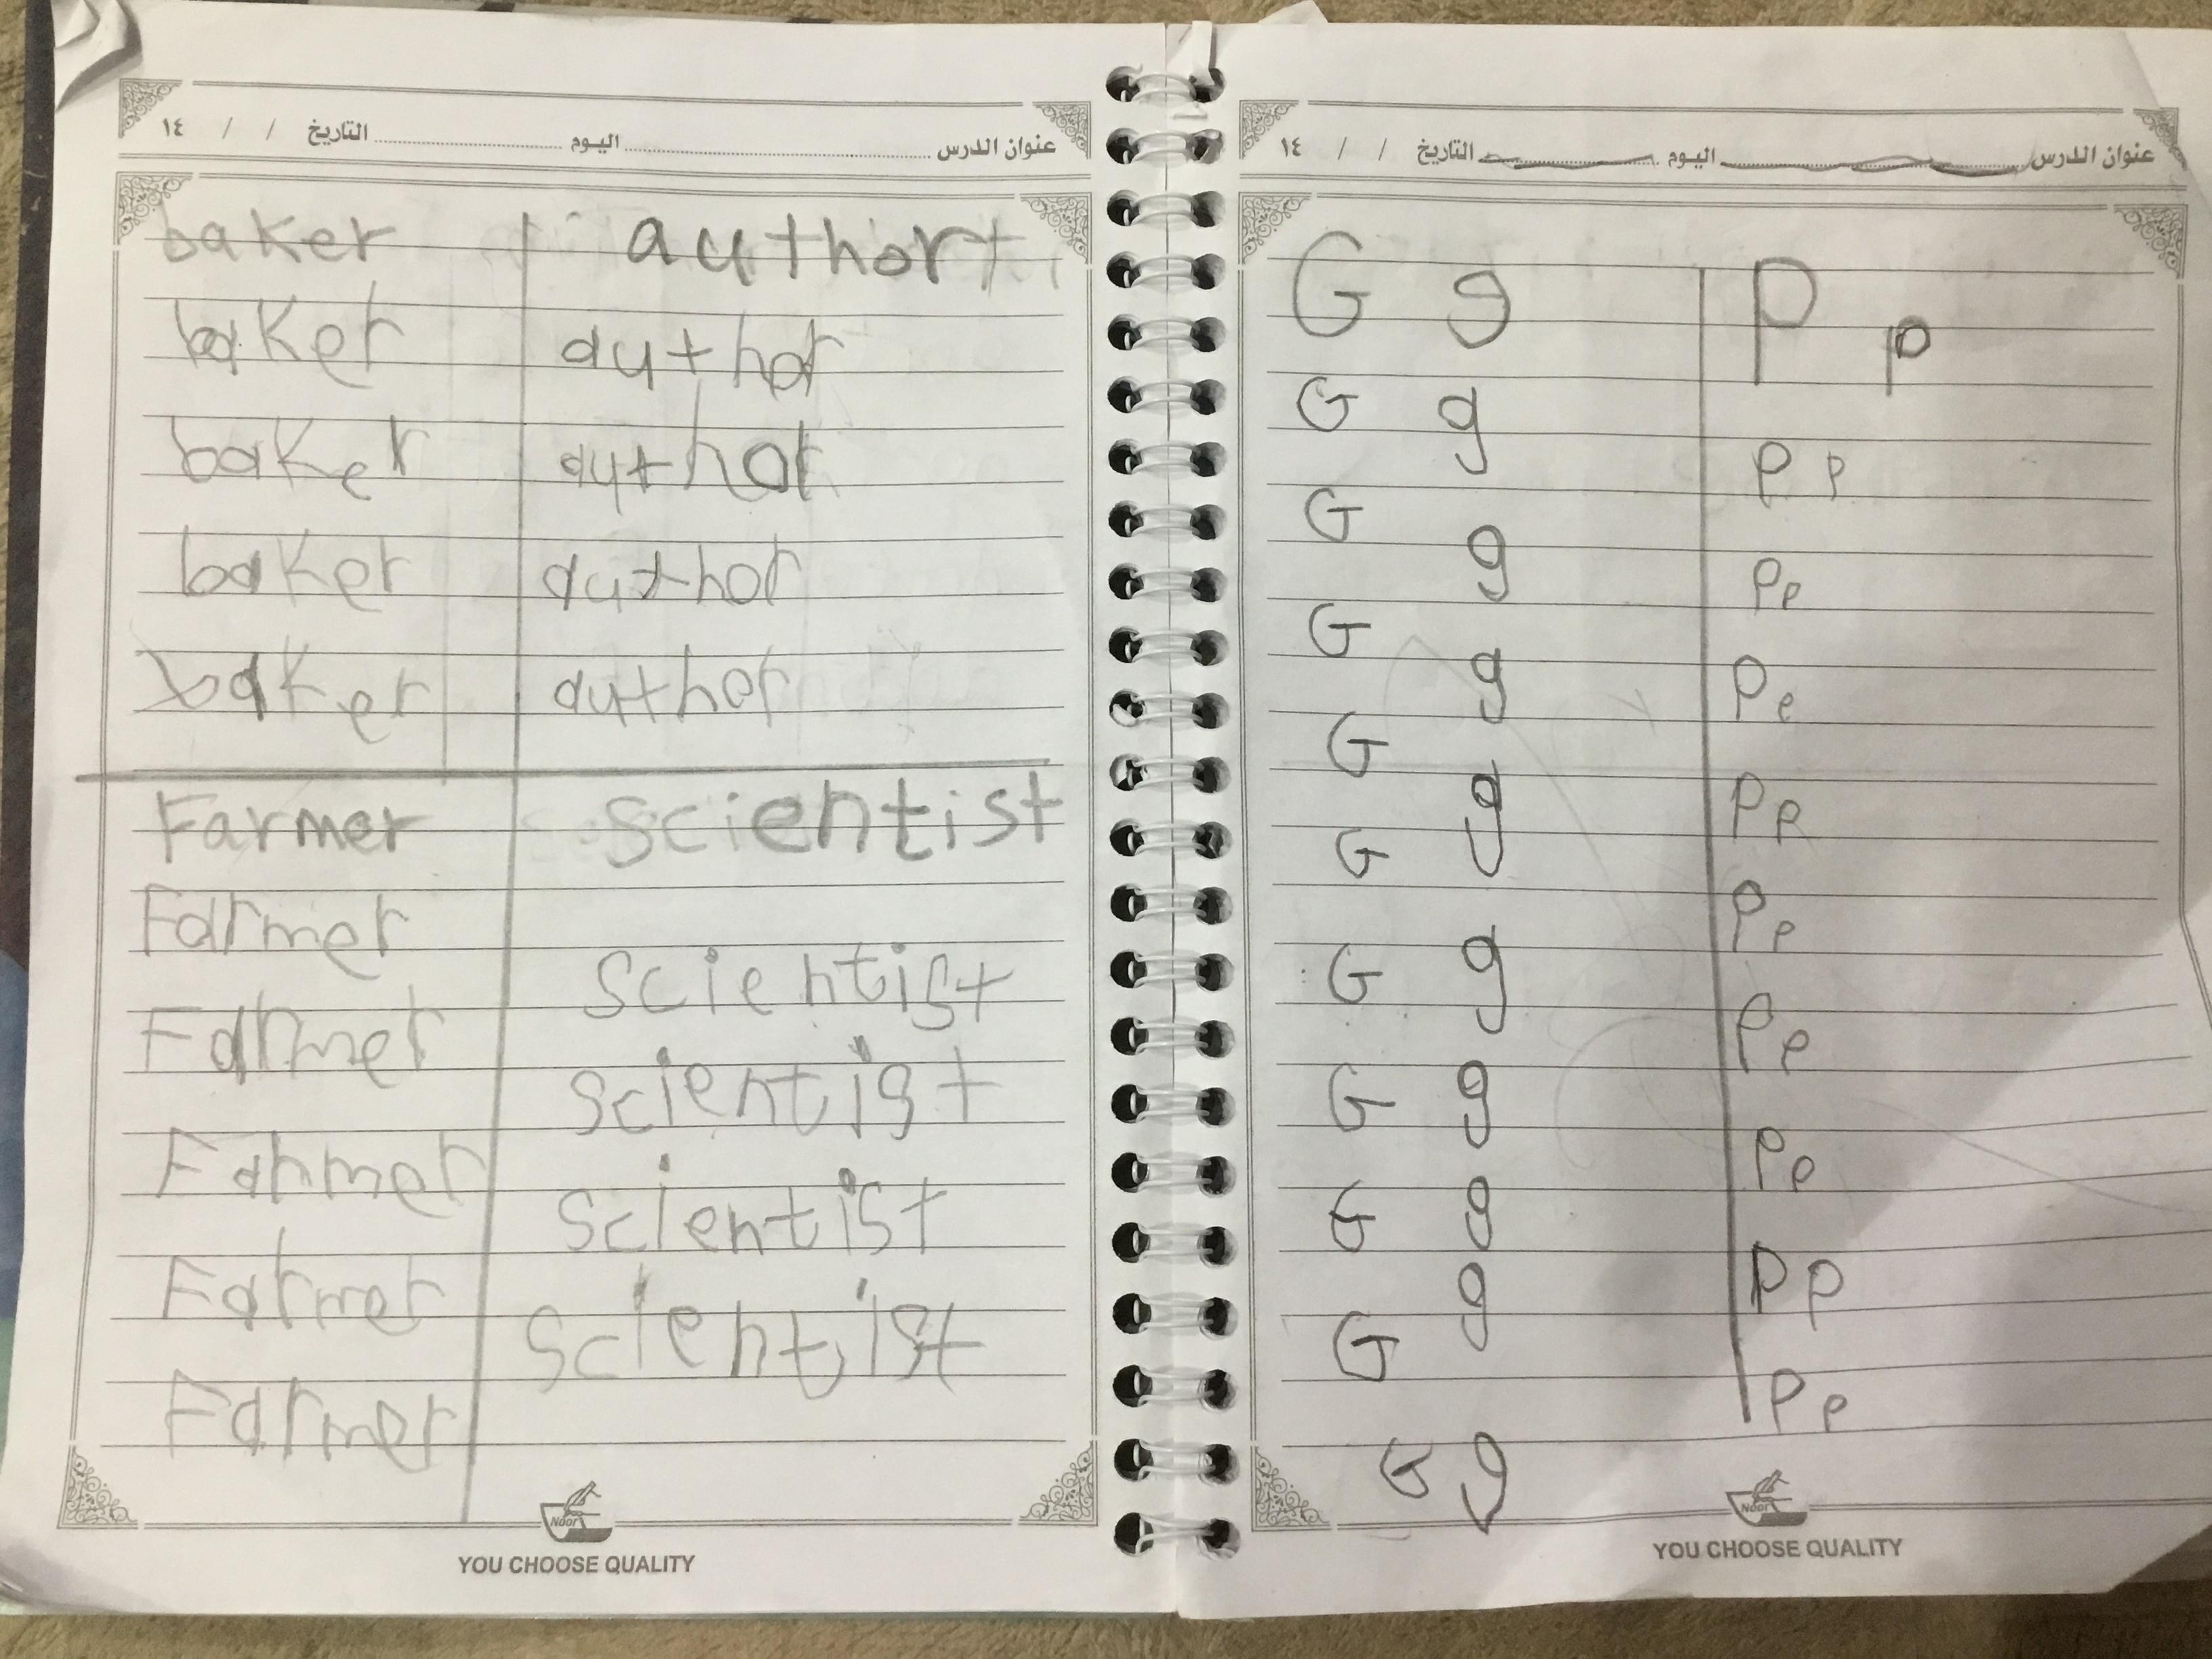 عنوان الدرس اليوم التاريخ / / ١٤
baker author
baker author
baker author
baker author
baker author
Farmer scientist
Farmer
scientist
Farmer
scientist
Farmer
scientist
Farmer
scientist
Farmer
Noor
YOU CHOOSE QUALITY
عنوان الدرس اليوم التاريخ / / ١٤
G g P p
G g
P P
G g
P p
G g
P p
G g
P p
G
P p
G g
P p
G g
P p
G g
P p
G g
P p
G g
Noor
YOU CHOOSE QUALITY